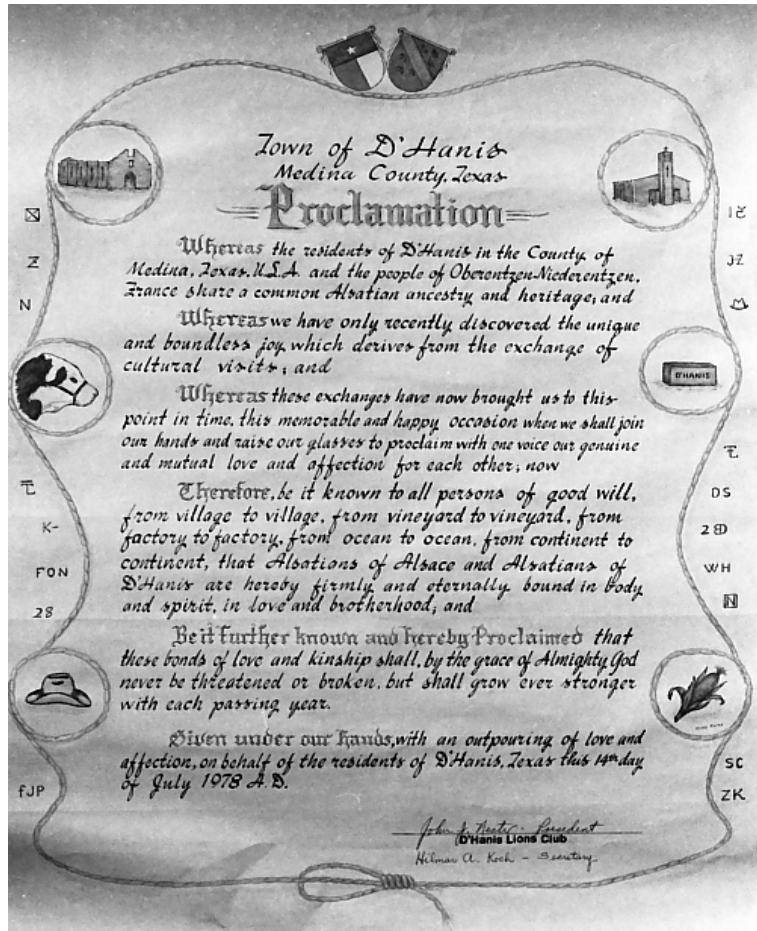 Town of D'Hanis
Medina County, Texas
Proclamation
Whereas the residents of D'Hanis in the County of
Medina, Texas, U.S.A. and the people of Oberentzen-Niederentzen,
France share a common Alsatian ancestry and heritage; and
Whereas we have only recently discovered the unique
and boundless joy which derives from the exchange of
cultural visits; and
Whereas these exchanges have now brought us to this
point in time, this memorable and happy occasion when we shall join
our hands and raise our glasses to proclaim with one voice our genuine
and mutual love and affection for each other; now
Therefore, be it known to all persons of good will,
from village to village, from vineyard to vineyard, from
factory to factory, from ocean to ocean, from continent to
continent, that Alsatians of Alsace and Alsatians of
D'Hanis are hereby firmly and eternally bound in body
and spirit, in love and brotherhood; and
Be it further known and hereby Proclaimed that
these bonds of love and kinship shall, by the grace of Almighty God
never be threatened or broken, but shall grow ever stronger
with each passing year.
Given under our hands, with an outpouring of love and
affection, on behalf of the residents of D'Hanis, Texas this 14th day
of July 1978 A.D.
John J. Nester - President
D'Hanis Lions Club
Hilmar A. Koch - Secretary
Z
N
K-
FON
28
FJP
JZ
D'HANIS
DS
2D
WH
N
SC
ZK